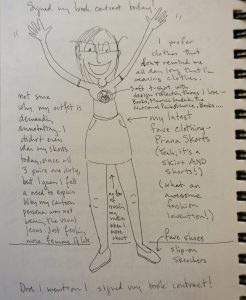 Signed my book contract today!
I prefer
clothes that
don't remind me
all day long that I'm
wearing clothes.
Soft t-shirt with
design reflecting things I love -
Books, Maurice Sendak,
not sure
why my outfit is
demanding
annotating. I
didn't even
wear my skorts
today, since all
3 pairs are dirty,
but I guess I felt
a need to explain
why my cartoon
persona was not
wearing the usual
jeans. Just feeling
more femme I guess
my latest
fave clothing -
Prana Skorts
(Yeah, it's a
skirt AND
shorts!)
(What an
awesome
fashion
invention!)
fave shoes
slip-on
Skechers
Did I mention I signed my book contract!